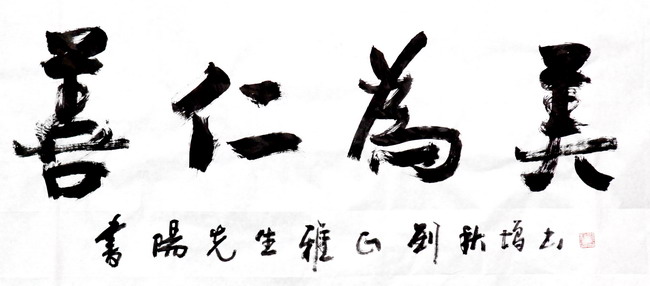 善仁為美
書陽先生雅正 劉秋增书